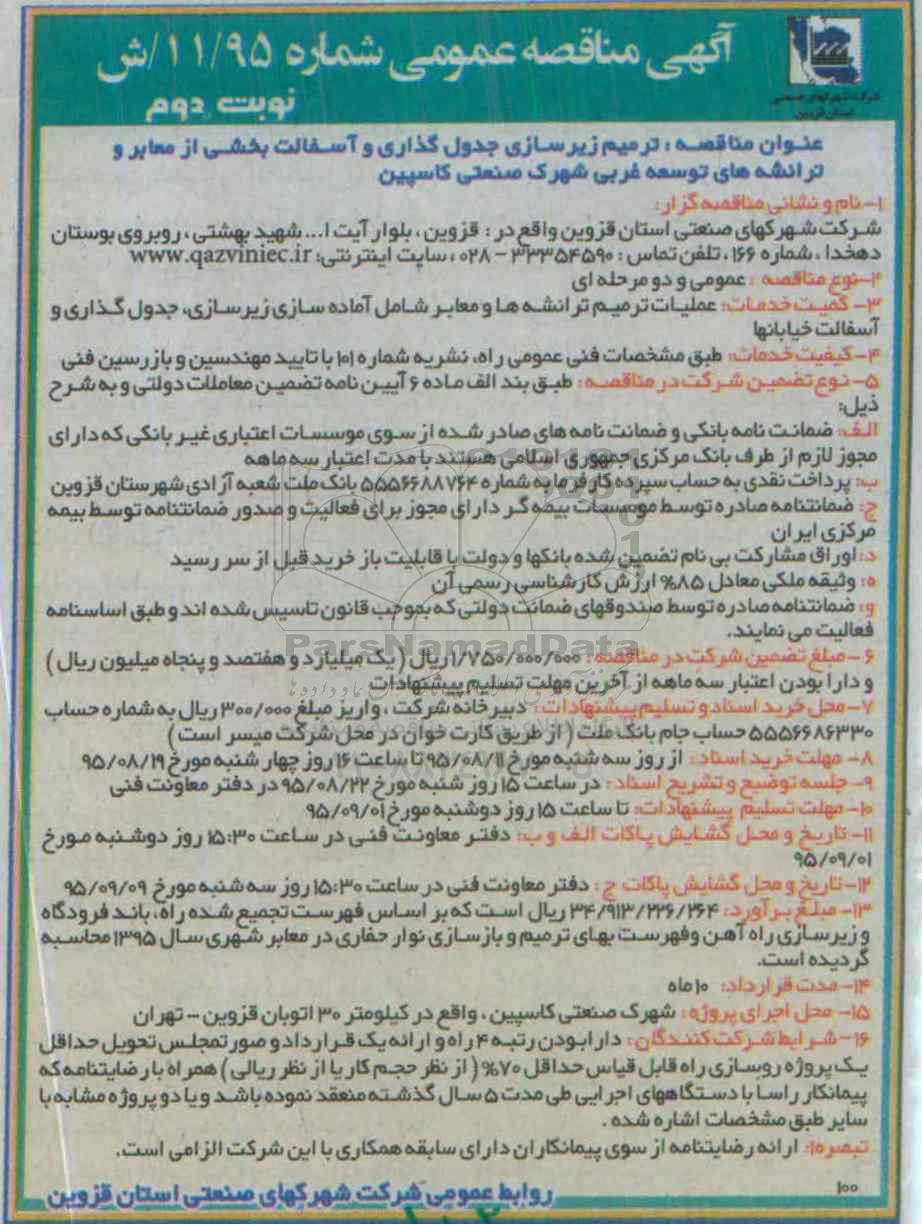 آگهی مناقصه عمومی شماره ۱۱/۹۵/ش
نوبت دوم
شرکت شهرکهای صنعتی
استان قزوین
عنوان مناقصه : ترمیم زیرسازی جدول گذاری و آسفالت بخشی از معابر و
ترانشه های توسعه غربی شهرک صنعتی کاسپین
۱-نام و نشانی مناقصه گزار:
شرکت شهرکهای صنعتی استان قزوین واقع در : قزوین ، بلوار آیت ا... شهید بهشتی ، روبروی بوستان
دهخدا ، شماره ۱۶۶ ، تلفن تماس : ۳۳۳۵۴۵۹۰ – ۰۲۸ ، سایت اینترنتی: www.qazviniec.ir
۲-نوع مناقصه : عمومی و دو مرحله ای
۳- کمیت خدمات: عملیات ترمیم ترانشه ها و معابر شامل آماده سازی زیرسازی، جدول گذاری و
آسفالت خیابانها
۴-کیفیت خدمات: طبق مشخصات فنی عمومی راه، نشریه شماره ۱۰۱ با تایید مهندسین و بازرسین فنی
۵-نوع تضمین شرکت در مناقصه : طبق بند الف ماده ۶ آیین نامه تضمین معاملات دولتی و به شرح
ذیل:
الف: ضمانت نامه بانکی و ضمانت نامه های صادر شده از سوی موسسات اعتباری غیر بانکی که دارای
مجوز لازم از طرف بانک مرکزی جمهوری اسلامی هستند با مدت اعتبار سه ماهه
ب: پرداخت نقدی به حساب سپرده کارفرما به شماره ۵۵۵۶۶۸۸۷۶۴ بانک ملت شعبه آزادی شهرستان قزوین
ج: ضمانتنامه صادره توسط موسسات بیمه گر دارای مجوز برای فعالیت و صدور ضمانتنامه توسط بیمه
مرکزی ایران
د: اوراق مشارکت بی نام تضمین شده بانکها و دولت با قابلیت باز خرید قبل از سر رسید
ه: وثیقه ملکی معادل ۸۵% ارزش کارشناسی رسمی آن
و: ضمانتنامه صادره توسط صندوقهای ضمانت دولتی که بموجب قانون تاسیس شده اند و طبق اساسنامه
فعالیت می نمایند.
ParsNamadData
۶-مبلغ تضمین شرکت در مناقصه : ۱/۷۵۰/۰۰۰/۰۰۰ریال ( یک میلیارد و هفتصد و پنجاه میلیون ریال )
و دارا بودن اعتبار سه ماهه از آخرین مهلت تسلیم پیشنهادات
۷-محل خرید اسناد و تسلیم پیشنهادات : دبیرخانه شرکت ، واریز مبلغ ۳۰۰/۰۰۰ ریال به شماره حساب
۵۵۵۶۶۸۶۳۳۰ حساب جام بانک ملت ( از طریق کارت خوان در محل شرکت میسر است )
۸- مهلت خرید اسناد: از روز سه شنبه مورخ ۹۵/۰۸/۱۱ تا ساعت ۱۶ روز چهار شنبه مورخ ۹۵/۰۸/۱۹
۹- جلسه توضیح و تشریح اسناد : در ساعت ۱۵ روز شنبه مورخ ۹۵/۰۸/۲۲ در دفتر معاونت فنی
۱۰- مهلت تسلیم پیشنهادات: تا ساعت ۱۵ روز دوشنبه مورخ ۹۵/۰۹/۰۱
۱۱- تاریخ و محل گشایش پاکات الف و ب: دفتر معاونت فنی در ساعت ۱۵:۳۰ روز دوشنبه مورخ
۹۵/۰۹/۰۱
۱۲-تاریخ و محل گشایش پاکات ج : دفتر معاونت فنی در ساعت ۱۵:۳۰ روز سه شنبه مورخ ۹۵/۰۹/۰۹
۱۳- مبلغ برآورد: ۳۴/۹۱۳/۲۲۶/۲۶۴ ریال است که بر اساس فهرست تجمیع شده راه، باند فرودگاه
و زیرسازی راه آهن وفهرست بهای ترمیم و بازسازی نوار حفاری در معابر شهری سال ۱۳۹۵ محاسبه
گردیده است.
۱۴-مدت قرارداد: ۱۰ ماه
۱۵- محل اجرای پروژه : شهرک صنعتی کاسپین ، واقع در کیلومتر ۳۰ اتوبان قزوین – تهران
۱۶-شرایط شرکت کنندگان : دارابودن رتبه ۴ راه و ارائه یک قرارداد و صورتمجلس تحویل حداقل
یک پروژه روسازی راه قابل قیاس حداقل ۷۰% ( از نظر حجم کار یا از نظر ریالی ) همراه با رضایتنامه که
پیمانکار راسا با دستگاههای اجرایی طی مدت ۵ سال گذشته منعقد نموده باشد و یا دو پروژه مشابه با
سایر طبق مشخصات اشاره شده .
تبصره۱: ارائه رضایتنامه از سوی پیمانکاران دارای سابقه همکاری با این شرکت الزامی است.
۱۰۰
روابط عمومی شرکت شهرکهای صنعتی استان قزوین